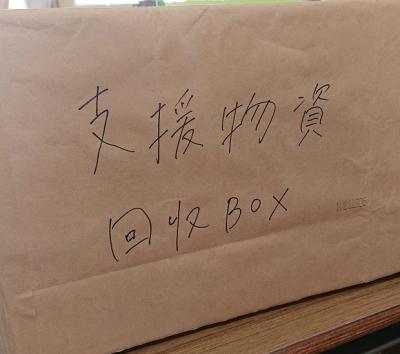 支援物資
回収BOX